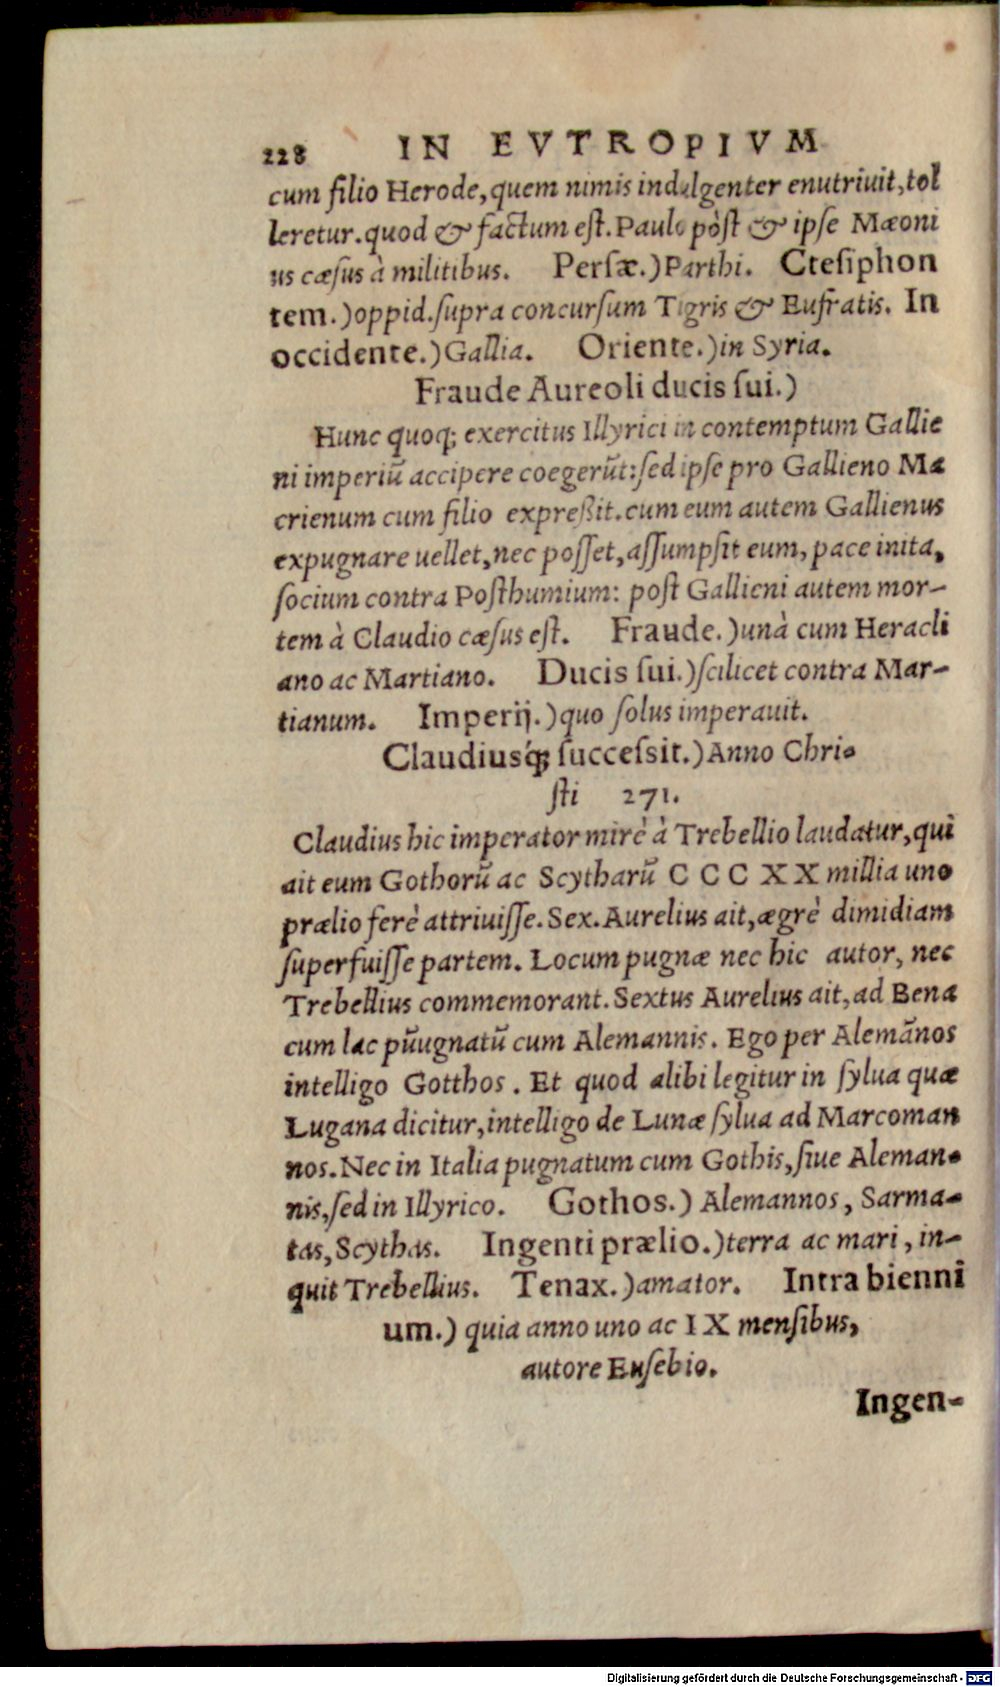 228 IN EVTROPIVM
cum filio Herode, quem nimis indulgenter enutriuit, tol
leretur. quod & factum est. Paulo pòst & ipse Mæoni
us cæsus à militibus. Persæ.) Parthi. Ctesiphon
tem.) oppid. supra concursum Tigris & Eufratis. In
occidente.) Gallia. Oriente.) in Syria.
Fraude Aureoli ducis sui.)
Hunc quoq; exercitus Illyrici in contemptum Gallie
ni imperiũ accipere coegerũt: sed ipse pro Gallieno Ma
crienum cum filio expreßit. cum eum autem Gallienus
expugnare uellet, nec posset, assumpsit eum, pace inita,
socium contra Posthumium: post Gallieni autem mor-
tem à Claudio cæsus est. Fraude.) unà cum Heracli
ano ac Martiano. Ducis sui.) scilicet contra Mar-
tianum. Imperij.) quo solus imperauit.
Claudiusq́; successit.) Anno Chri-
sti 271.
Claudius hic imperator mirè à Trebellio laudatur, qui
ait eum Gothorũ ac Scytharũ C C C X X millia uno
prælio ferè attriuisse. Sex. Aurelius ait, ægrè dimidiam
superfuisse partem. Locum pugnæ nec hic autor, nec
Trebellius commemorant. Sextus Aurelius ait, ad Bena
cum lac pũugnatũ cum Alemannis. Ego per Alemãnos
intelligo Gotthos. Et quod alibi legitur in sylua quæ
Lugana dicitur, intelligo de Lunæ sylua ad Marcoman
nos. Nec in Italia pugnatum cum Gothis, siue Aleman-
nis, sed in Illyrico. Gothos.) Alemannos, Sarma-
tas, Scythas. Ingenti prælio.) terra ac mari, in-
quit Trebellius. Tenax.) amator. Intra bienni
um.) quia anno uno ac IX mensibus,
autore Eusebio.
Ingen-
Digitalisierung gefördert durch die Deutsche Forschungsgemeinschaft - DFG